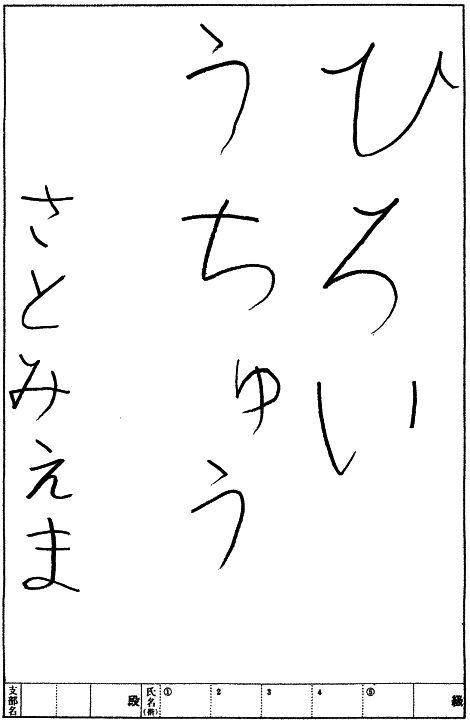 ひろい
うちゅう
さとみえま
支部名 段 氏名 ① 2 3 4 ⑤ 級